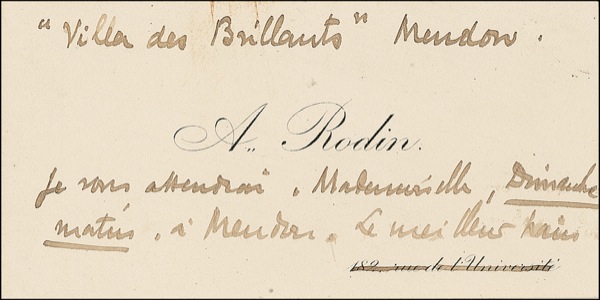 "Villa des Brillants" Meudon.
A. Rodin.
Je vous attendrai, Mademoiselle, Dimanche
matin, à Meudon. Le meilleur train
182, rue de l'Université